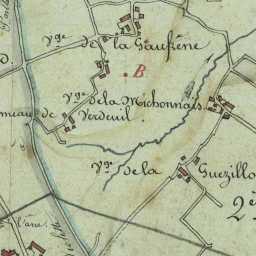 Vge
de la Gaufrene
B
Vge de la Michonnais
meau de Verdeuil
Vge de la Guezillo
2e
l'ane